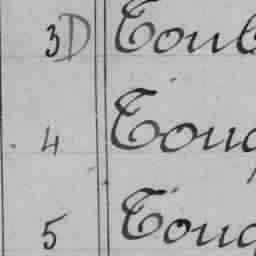 3D Toul
4 Touq
5 Touq